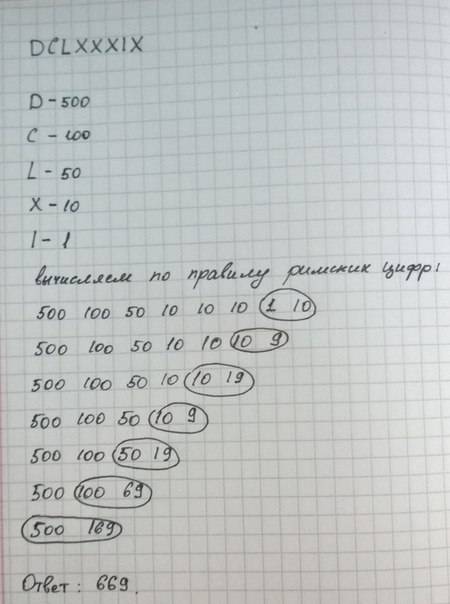 DCLXXXIX
D - 500
C - 100
L - 50
X - 10
I - 1
вычисляем по правилу римских цифр:
500 100 50 10 10 10 1 10
500 100 50 10 10 10 9
500 100 50 10 10 19
500 100 50 10 9
500 100 50 19
500 100 69
500 169
Ответ: 669.